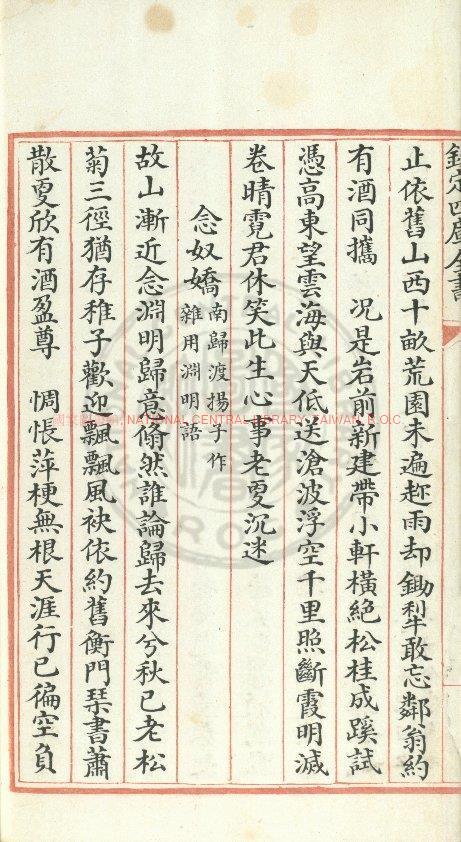 欽定四庫全書
止依舊山西十畝荒園未遍趂雨却鋤犂敢忘鄰翁約
有酒同攜　况是岩前新建帶小軒橫絕松桂成蹊試
憑高東望雲海與天低送滄波浮空千里照斷霞明滅
卷晴霓君休笑此生心事老更沉迷
念奴嬌南歸渡揚子作雜用淵明語
故山漸近念淵明歸意翛然誰論歸去來兮秋已老松
菊三徑猶存稚子歡迎飄飄風袂依約舊衡門琴書蕭
散更欣有酒盈尊　惆悵萍梗無根天涯行已徧空負
國家圖書館 NATIONAL CENTRAL LIBRARY, TAIWAN, R.O.C